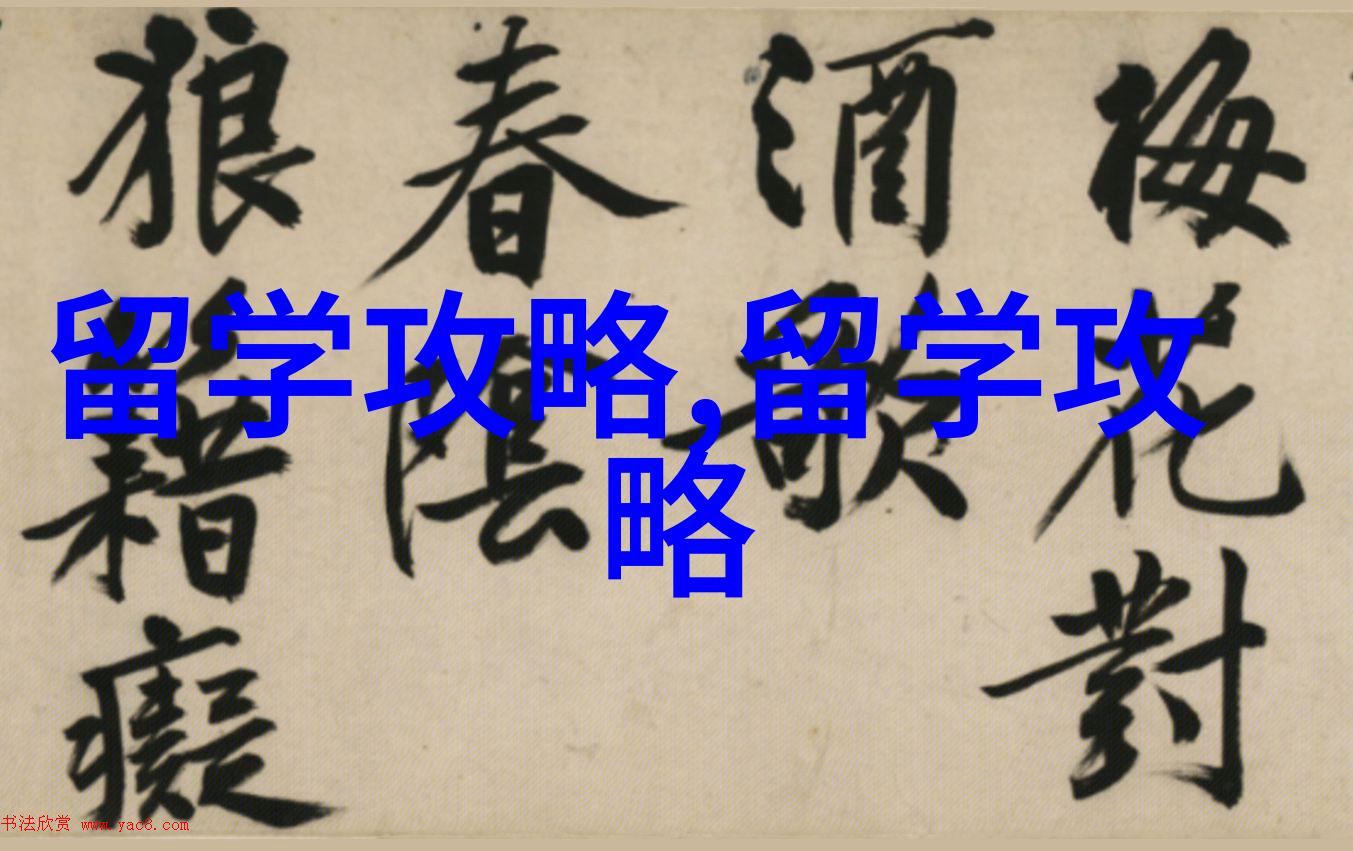 梅花對
酒歌
春陰
狼籍癡
留学攻略,留学攻
略
书法欣赏 www.yac8.com